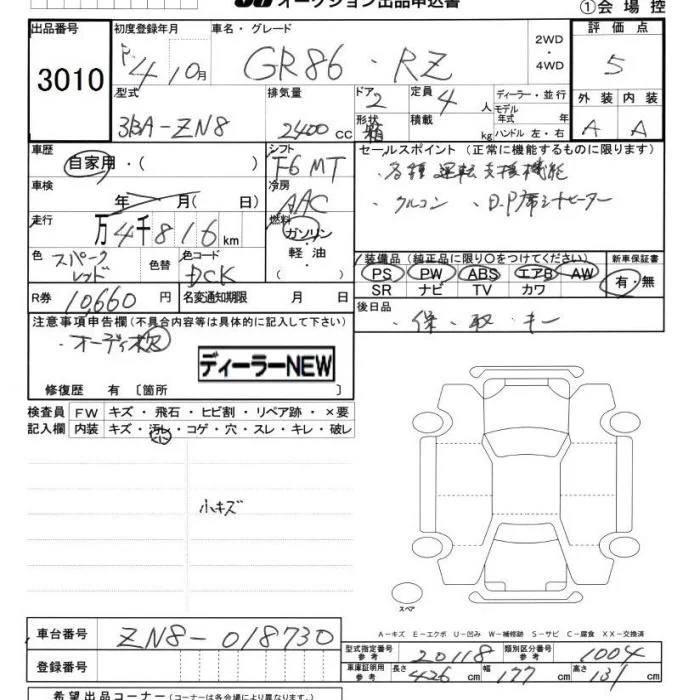 オークション出品申込書
①会場控
出品番号 初度登録年月 車名・グレード 2WD・4WD 評価点
3010 R.4 10月 GR86・RZ 5
型式 排気量 ドア 2 定員 4人 ディーラー・並行 外装 内装
3BA-ZN8 2400cc 形状 箱 積載 kg モデル年式 年 ハンドル 左・右 A A
車歴 シフト セールスポイント (正常に機能するものに限ります)
自家用・( ) F6 MT ・各種運転支援機能
車検 冷房 ・クルコン ・D.P席シートヒーター
年 月( 日) AAC
走行 燃料
万4千816km ガソリン
軽・油
( )
色 色替 色コード 装備品 (純正品に限り○をつけてください) 新車保証書
スパークレッド DCK PS PW ABS エアB AW 有・無
SR ナビ TV カワ
R券 10,660円 名変通知期限 月 日 後日品
・保・取・キー
注意事項申告欄(不具合内容等は具体的に記入して下さい)
・オーディオ
ディーラーNEW
修復歴 有 〔箇所 〕
検査員 FW キズ・飛石・ヒビ割・リペア跡・×要
記入欄 内装 キズ・汚レ・コゲ・穴・スレ・キレ・破レ
小キズ
スペア
A-キズ E-エクボ U-凹み W-補修跡 S-サビ C-腐食 XX-交換済
車台番号 ZN8-018730
型式指定番号 参考 20118 類別区分番号 参考 1004
登録番号
車庫証明用 参考 長さ 426cm 幅 177cm 高さ 131cm
希望出品コーナー(コーナーは各会場により異なります。)